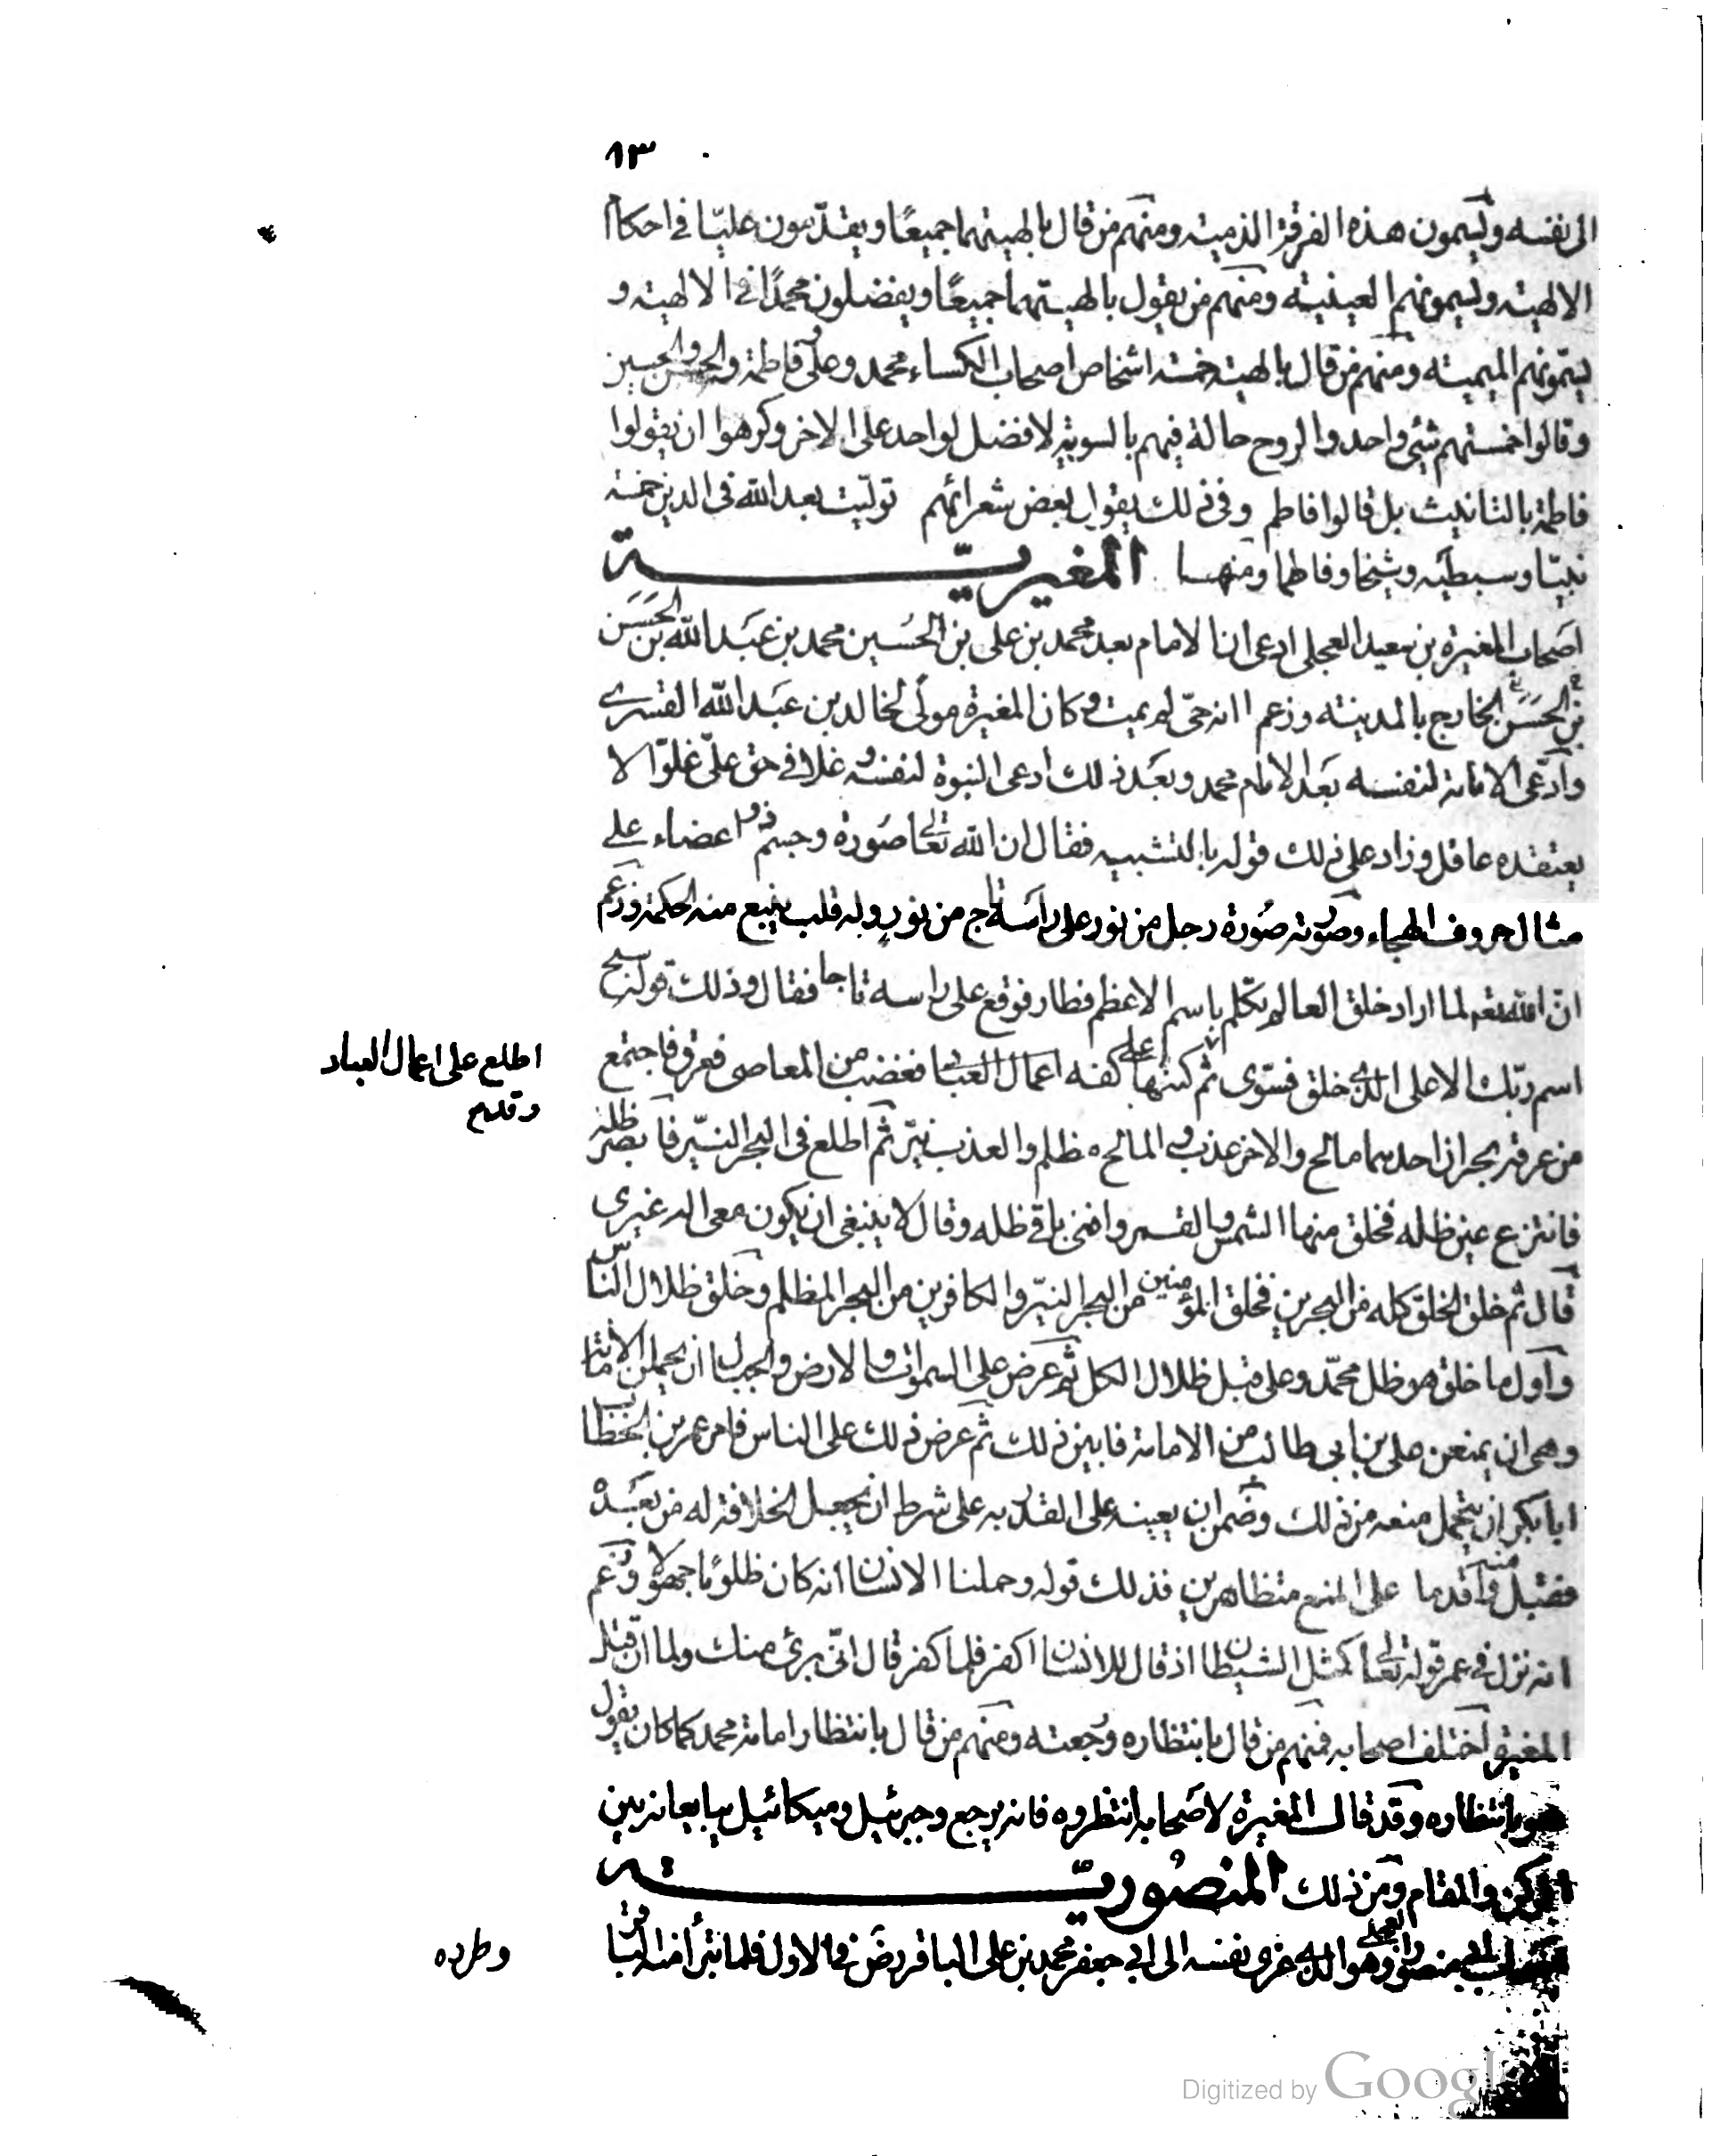 ٨٣
الى نفسه ويسمون هذه الفرقة الذمية ومنهم من قال بالهيتهما جميعًا ويقدّمون عليّا فى احكام
الالهية ويسمونهم العينية ومنهم من يقول بالهيتهما جميعًا ويفضلون محمدًا فى الالهية و
يسمّونهم الميمية ومنهم من قال بالهية خمسة اشخاص اصحاب الكساء محمد وعلى وفاطمة والحسن والحسين
وقالوا خمستهم شئ واحد والروح حالة فيهم بالسوية لا فضل لواحد على الاخر وكرهوا ان يقولوا
فاطمة بالتانيث بل قالوا فاطم وفى ذلك يقول بعض شعرائهم توليّت بعد الله فى الدين خمسة
نبيّا وسبطيه وشيخا وفاطما ومنها المغيريّة
اصحاب المغيرة بن سعيد العجلى ادعى ان الامام بعد محمد بن على بن الحُسَين محمد بن عَبد الله بن الحَسَن
بن الحَسَن الخارج بالمدينة وزعم انه حىّ لم يمت وكان المغيرة مولى لخالد بن عَبد الله القسرى
وادّعى الامامة لنفسه بَعد الامام محمد وبعَد ذلك ادعى النبوة لنفسه وغلا فى حق علىّ غلوّا لا
يعتقده عاقل وزاد على ذلك قوله بالتشبيه فقال ان الله تعالى صُورة وجسم ذو اعضاء على
مثال حروف الهجاء وصُورته صُورة رجل من نور على راسَه تاج من نور وله قلب ينبع منه الحكمة وزعَم
انّ الله تعه لما اراد خلق العالم تكّلم باسم الاعظم فطار فوقع على راسه تاجا فقال وذلك قوله سبح
اسم ربّك الاعلى الذى خلق فسّوى ثم كتبها على كفه اعمال العباد فغضب من المعاصى فعرق فاجتمع
اطلع على اعمال العباد
وقد
من عرقه بحران احدهما مالح والاخر عذب والمالح مظلم والعذب نيّر ثم اطلع فى البحر النيّر فابصر ظله
فانتزع عين ظله فخلق منها الشمس والقمر وافنى باقى ظله وقال لا ينبغى ان يكون معى اله غيرى
قال ثم خلق الخلق كله من البحرين فخلق المؤمنين من البحر النيّر والكافرين من البحر المظلم وخلق ظلال الناس
واول ما خلق هو ظل محمّد وعلى قبل ظلال الكل ثم عرض على السموات والارض والجبال ان يحملن الامانة
وهى ان يمنعن على بن ابى طالب من الامامة فابين ذلك ثم عرض ذلك على الناس فامر عمر بن الخطاب
ابا بكر ان يتحمل منعه من ذلك وضمن ان يعينه على الغدر به على شرط ان يجعل الخلافة له من بعَده
فقبل منه واقدما على المنع متظاهرين فذلك قوله وحملها الانسان انه كان ظلومًا جهولا وزعم
انه نزل فى عمر قوله تعالى كمثل الشيطان اذ قال للانسان اكفر فلما كفر قال انّى برئ منك ولما ان قتل
المغيرة اختلف اصحابه فمنهم من قال بانتظاره ورجعته ومنهم من قال بانتظار امامة محمد كما كان يقول
هو بانتظاره وقد قال المغيرة لاصَحابه انتظروه فانه يرجع وجبرئيل وميكائيل يبايعانه بين
الركن والمقام ومن ذلك المنصُوريّة
اصحاب ابى منصور العجلى وهو الذى عزى نفسه الى ابى جعفر محمد بن على الباقر رضَ فى الاول فلما تبرأ منه الباقر
وطرده
Digitized by Google